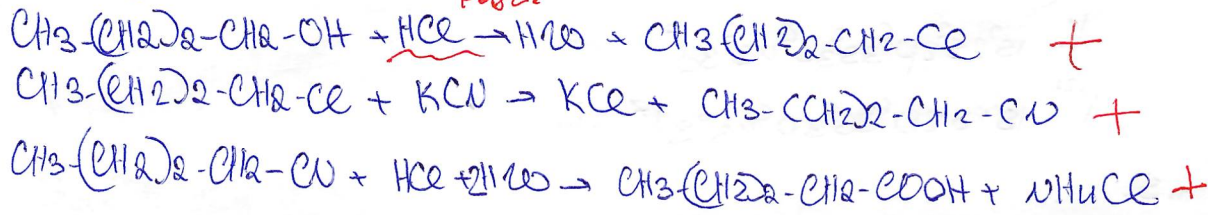 CH3-(CH2)2-CH2-OH + HCl → H2O + CH3(CH2)2-CH2-Cl +
CH3-(CH2)2-CH2-Cl + KCN → KCl + CH3-(CH2)2-CH2-CN +
CH3-(CH2)2-CH2-CN + HCl + 2H2O → CH3-(CH2)2-CH2-COOH + NH4Cl +